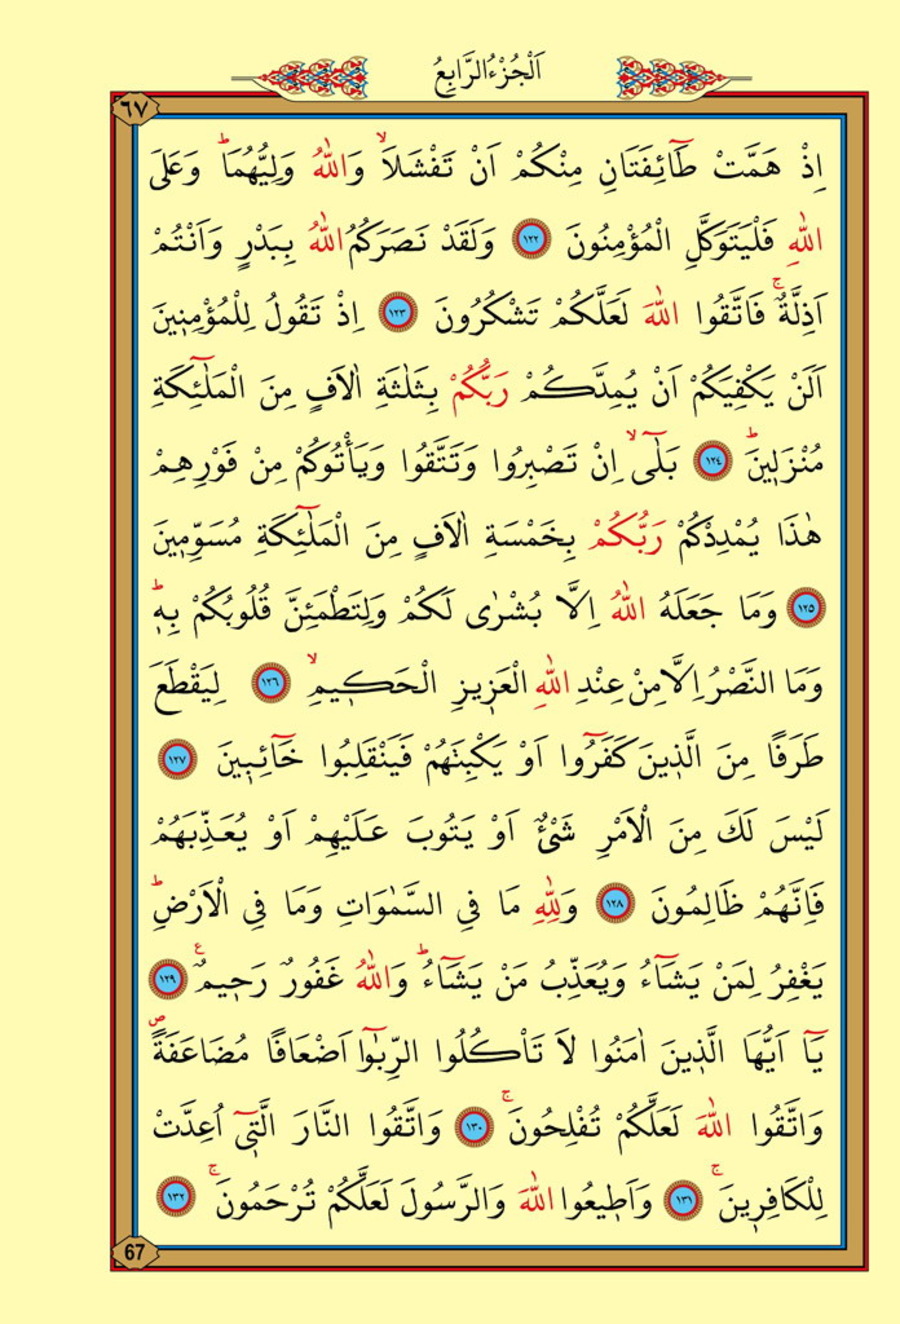 اَلْجُزْءُ الرَّابِعُ
٦٧
اِذْ هَمَّتْ طَٓائِفَتَانِ مِنْكُمْ اَنْ تَفْشَلَاۙ وَاللّٰهُ وَلِيُّهُمَاۜ وَعَلَى
اللّٰهِ فَلْيَتَوَكَّلِ الْمُؤْمِنُونَ ١٢٢ وَلَقَدْ نَصَرَكُمُ اللّٰهُ بِبَدْرٍ وَاَنْتُمْ
اَذِلَّةٌۚ فَاتَّقُوا اللّٰهَ لَعَلَّكُمْ تَشْكُرُونَ ١٢٣ اِذْ تَقُولُ لِلْمُؤْمِنٖينَ
اَلَنْ يَكْفِيَكُمْ اَنْ يُمِدَّكُمْ رَبُّكُمْ بِثَلٰثَةِ اٰلَافٍ مِنَ الْمَلٰٓئِكَةِ
مُنْزَلٖينَۜ ١٢٤ بَلٰٓىۙ اِنْ تَصْبِرُوا وَتَتَّقُوا وَيَأْتُوكُمْ مِنْ فَوْرِهِمْ
هٰذَا يُمْدِدْكُمْ رَبُّكُمْ بِخَمْسَةِ اٰلَافٍ مِنَ الْمَلٰٓئِكَةِ مُسَوِّمٖينَ
١٢٥ وَمَا جَعَلَهُ اللّٰهُ اِلَّا بُشْرٰى لَكُمْ وَلِتَطْمَئِنَّ قُلُوبُكُمْ بِهٖۜ
وَمَا النَّصْرُ اِلَّا مِنْ عِنْدِ اللّٰهِ الْعَزٖيزِ الْحَكٖيمِۙ ١٢٦ لِيَقْطَعَ
طَرَفًا مِنَ الَّذٖينَ كَفَرُٓوا اَوْ يَكْبِتَهُمْ فَيَنْقَلِبُوا خَٓائِبٖينَ ١٢٧
لَيْسَ لَكَ مِنَ الْاَمْرِ شَيْءٌ اَوْ يَتُوبَ عَلَيْهِمْ اَوْ يُعَذِّبَهُمْ
فَاِنَّهُمْ ظَالِمُونَ ١٢٨ وَلِلّٰهِ مَا فِي السَّمٰوَاتِ وَمَا فِي الْاَرْضِۜ
يَغْفِرُ لِمَنْ يَشَٓاءُ وَيُعَذِّبُ مَنْ يَشَٓاءُۜ وَاللّٰهُ غَفُورٌ رَحٖيمٌ ع ١٢٩
يَٓا اَيُّهَا الَّذٖينَ اٰمَنُوا لَا تَأْكُلُوا الرِّبٰٓوا اَضْعَافًا مُضَاعَفَةً ص
وَاتَّقُوا اللّٰهَ لَعَلَّكُمْ تُفْلِحُونَۚ ١٣٠ وَاتَّقُوا النَّارَ الَّتٖٓي اُعِدَّتْ
لِلْكَافِرٖينَۚ ١٣١ وَاَطٖيعُوا اللّٰهَ وَالرَّسُولَ لَعَلَّكُمْ تُرْحَمُونَۚ ١٣٢
67